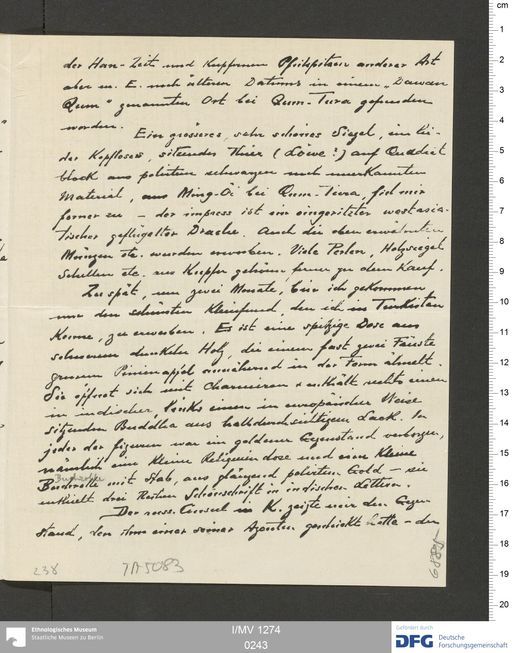 der Han-Zeit und kupfernen Pfeilspitzen anderer Art
aber m. E. noch älteren Datums in einem „Dawan
Qum" genannten Ort bei Qum-Tura gefunden
worden.
Ein grösseres, sehr schönes Siegel, ein lei-
der kopfloses, sitzendes Thier (Löwe?) auf Quadrat
block aus polirtem schwarzen noch unerkannten
Material, aus Ming-Öi bei Qum-Tura, fiel mir
ferner zu - der impress ist ein eingeritzter westasia-
tischer geflügelter Drache. Auch die oben erwähnten
Münzen etc. wurden erworben. Viele Perlen, Holzsiegel
Schellen etc. aus Kupfer gehören ferner zu dem Kauf.
Zu spät, um zwei Monate, bin ich gekommen,
um den schönsten Kleinfund, den ich in Turkistan
kenne, zu erwerben. Es ist eine spitzige Dose aus
schwerem dunkelm Holz, die einem fast zwei Fäuste
grossen Pinienapfel annähernd in der Form ähnelt.
Sie öffnet sich mit Charnieren & enthält rechts einen
in indischer, links einen in europäischer Weise
sitzenden Buddha aus halbdurchsichtigem Lack. In
jeder der figuren war ein goldener Gegenstand verborgen,
nämlich eine kleine Reliquien dose und eine kleine
Buchrolle mit Stab, aus glänzend polirtem Gold - sie
enthielt drei Reihen Schönschrift in indischen Lettern.
Der russ. Consul in K. zeigte mir den Gegen
stand, den ihm einer seiner Agenten geschickt hatte - den
238
7/A 5083
I/MV 1274
0243
Ethnologisches Museum
Staatliche Museen zu Berlin
Gefördert durch
DFG Deutsche
Forschungsgemeinschaft
cm
1
2
3
4
5
6
7
8
9
10
11
12
13
14
15
16
17
18
19
20